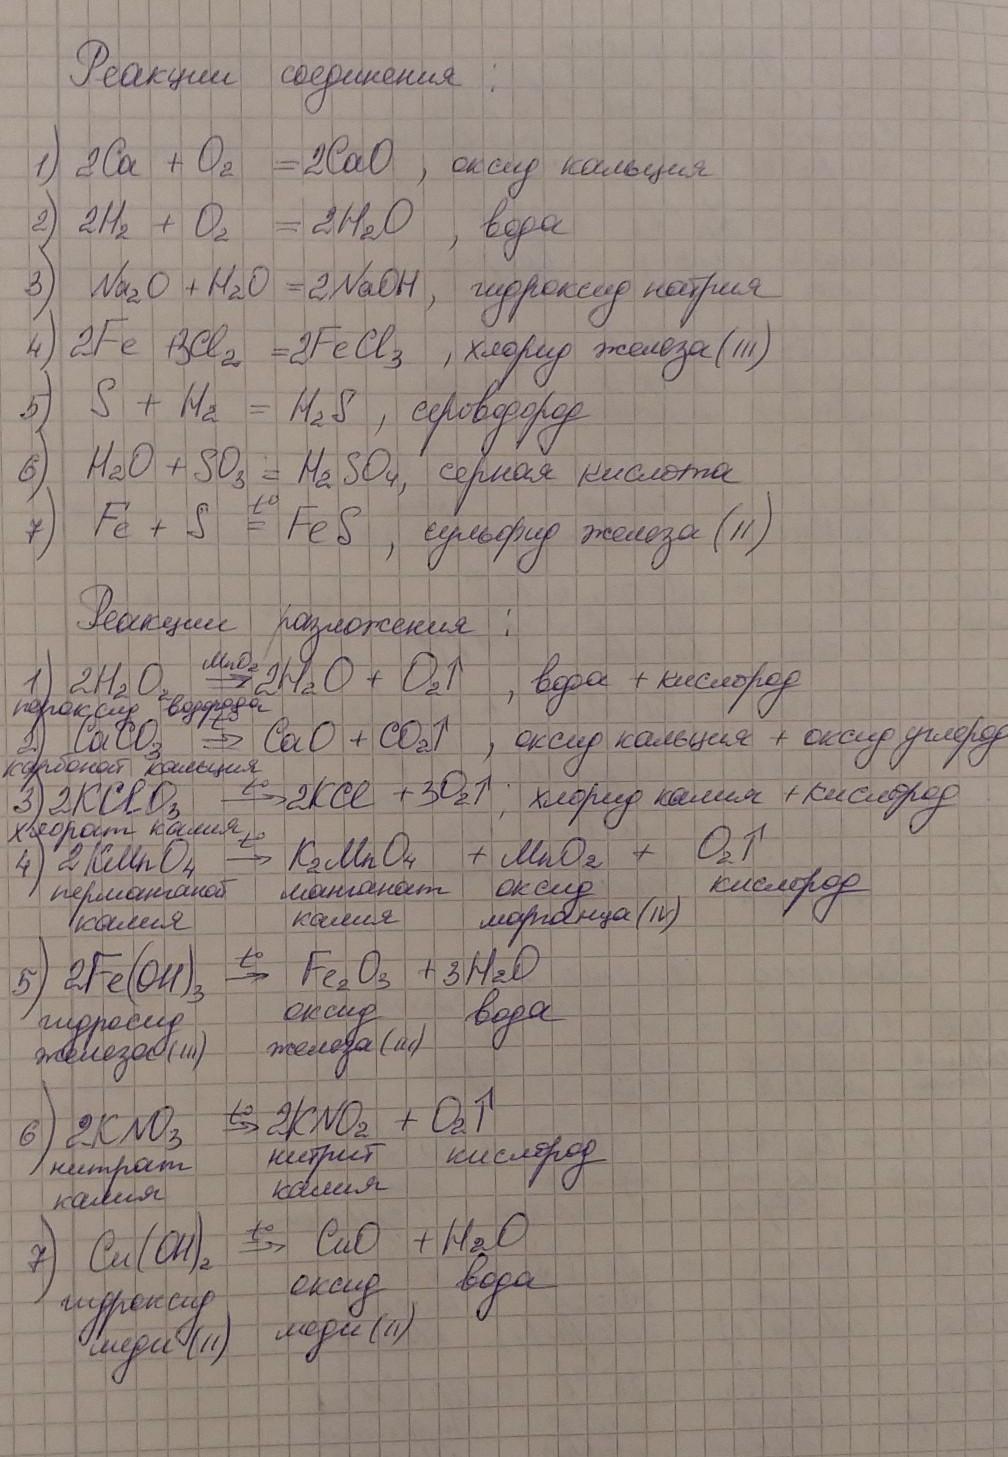 Реакции соединения :
1) 2Ca + O₂ = 2CaO , оксид кальция
2) 2H₂ + O₂ = 2H₂O , вода
3) Na₂O + H₂O = 2NaOH, гидроксид натрия
4) 2Fe + 3Cl₂ = 2FeCl₃ , хлорид железа (III)
5) S + H₂ = H₂S , сероводород
6) H₂O + SO₃ = H₂SO₄, серная кислота
7) Fe + S t° = FeS , сульфид железа (II)
Реакции разложения :
1) 2H₂O₂ MnO₂ → 2H₂O + O₂↑ , вода + кислород
пероксид водорода
2) CaCO₃ t° → CaO + CO₂↑ , оксид кальция + оксид углерод
карбонат кальция
3) 2KClO₃ t° → 2KCl + 3O₂↑, хлорид калия + кислород
хлорат калия
4) 2KMnO₄ t° → K₂MnO₄ + MnO₂ + O₂↑
перманганат манганат оксид кислород
калия калия марганца (IV)
5) 2Fe(OH)₃ t° → Fe₂O₃ + 3H₂O
гидросид оксид вода
железа (III) железа (III)
6) 2KNO₃ t° → 2KNO₂ + O₂↑
нитрат нитрит кислород
калия калия
7) Cu(OH)₂ t° → CuO + H₂O
гидроксид оксид вода
меди (II) меди (II)